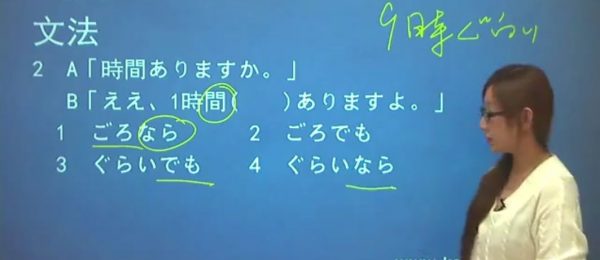 文法
9時ぐらい
2 A「時間ありますか。」
B「ええ、1時間( )ありますよ。」
1 ごろなら 2 ごろでも
3 ぐらいでも 4 ぐらいなら